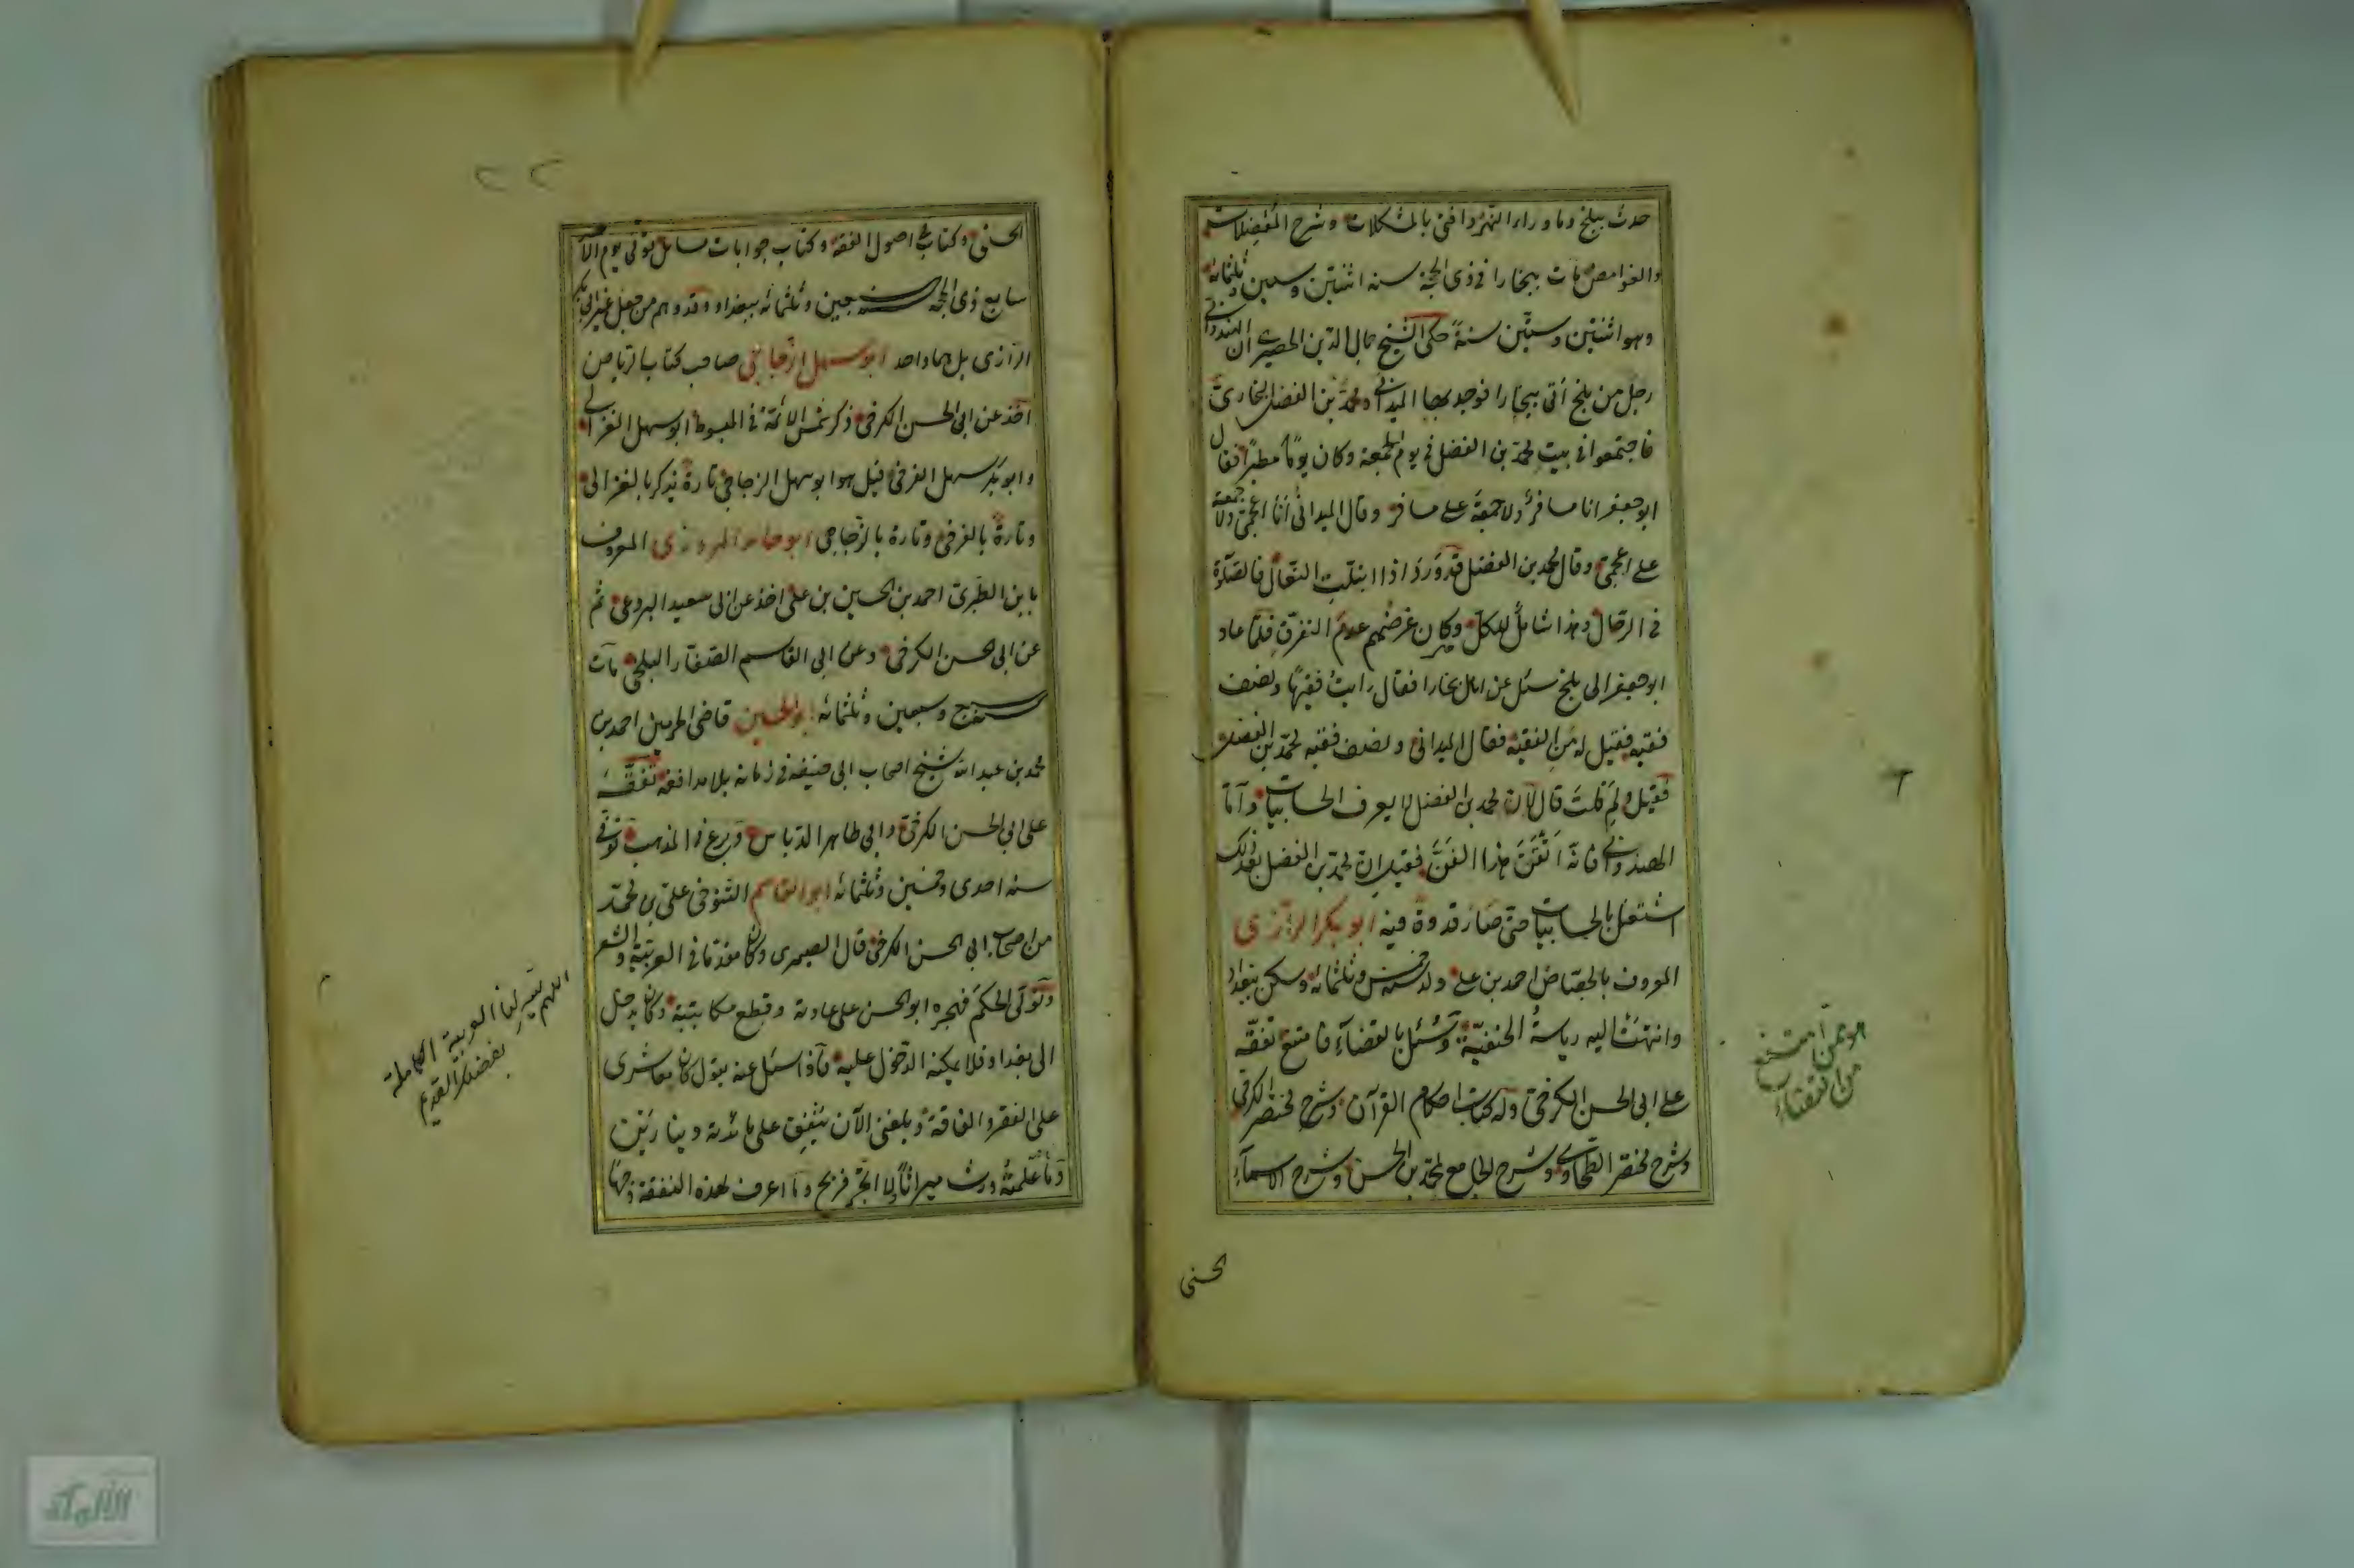 حدث ببلخ وما وراء النهر وافتى بالمشكلات وشرح المعضلات
والغوامض مات ببخارا فى ذى الحجة سنة اثنتين وستين وثلثمائة
وهو اثنتين وستين سنة حكى الشيخ جمال الدين الحصيرى ان الهندوانى
رجل من بلخ أتى ببخارا فوجد بها الميدانى ومحمد بن الفضل البخارى
فاجتمعوا فى بيت محمد بن الفضل فى يوم الجمعة وكان يوما مطيرا فقال
ابو جعفر انا مسافر ولا جمعة على مسافر وقال الميدانى أنا اعجمى ولا جمعة
على اعجمى وقال محمد بن الفضل قد ورد اذا ابتلت النعال فالصلوة
فى الرحال وهذا شامل للكل وكان غرضهم عدم التفرق فلما عاد
ابو جعفر الى بلخ سئل عن اهل بخارا فقال رايت فقيها ونصف
فقيه فقيل له من الفقيه فقال الميدانى ونصف فقيه محمد بن الفضل
فقيل ولم قلت قال لان محمد بن الفضل لا يعرف الحسابيات وأما
الميدانى فانه اتقن هذا الفن فقيل ان محمد بن الفضل بعد ذلك
اشتغل بالحسابيات حتى صار قدوة فيه ابو بكر الرازى
المعروف بالجصاص احمد بن على ولد سنة خمس وثلثمائة وسكن بغداد
وانتهت اليه رياسة الحنفية وسئل بالقضاء فامتنع تفقه
على ابى الحسن الكرخى وله كتاب احكام القرآن وشرح مختصر الكرخى
وشرح مختصر الطحاوى وشرح الجامع لمحمد بن الحسن وشرح الاسماء
الحسنى
هو ممن امتنع
من القضاء
٢٢
الحسنى وكتاب فى اصول الفقه وكتاب جوابات مسائل توفى يوم الاحد
سابع ذى الحجة سنة سبعين وثلثمائة ببغداد وقد وهم من جعل غير ابى بكر
الرازى بل هما واحد ابو سهل الزجاجى صاحب كتاب الرياض
أخذ عن ابى الحسن الكرخى ذكر شمس الائمة فى المبسوط ابو سهل الغزالى
وابو بكر سهل الفرضى قيل هو ابو سهل الزجاجى تارة يذكر بالغزالى
وتارة بالفرضى وتارة بالزجاجى ابو حامد المروزى المعروف
بابن الطبرى احمد بن الحسين بن على اخذ عن ابى سعيد البردعى ثم
عن ابى الحسن الكرخى وعن ابى القاسم الصفار البلخى مات
سنة سبع وسبعين وثلثمائة ابو الحسين قاضى الحرمين احمد بن
محمد بن عبد الله شيخ اصحاب ابى حنيفة فى زمانه بلا مدافعة تفقه
على ابى الحسن الكرخى وابى طاهر الدباس وبرع فى المذهب توفى
سنة احدى وخمسين وثلثمائة ابو القاسم التنوخى على بن محمد
من اصحاب ابى الحسن الكرخى قال الصيمرى وكان مقدما فى العربية والشعر
وتولى الحكم فهجره ابو الحسن على عادته وقطع مكاتبته وكان يدخل
الى بغداد فلا يمكنه الدخول عليه فاذا سئل عنه يقول كان يعاشرى
على الفقر والفاقة وبلغنى الآن ينفق على مائدته دينارين
وما علمته ورث ميراثا ولا اتجر فربح وما اعرف لهذه النفقة وجها
اللهم يسر لنا العربية الكاملة
بفضلك القديم